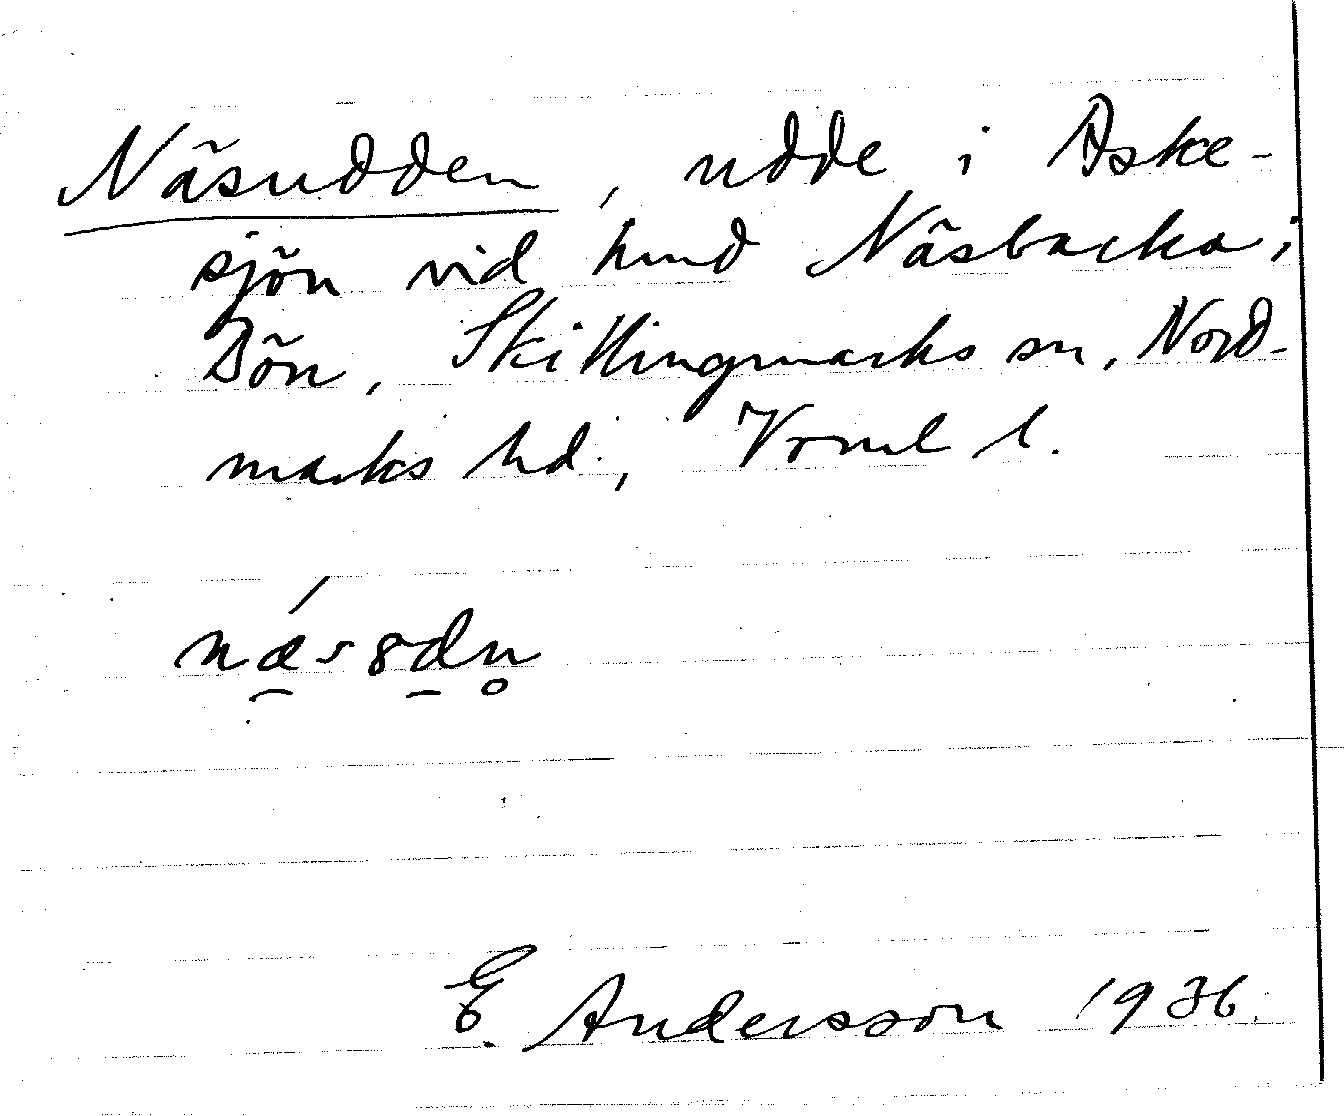 Näsudden, udde i Aske-
sjön vid hmd Näsbacka i
Bön, Skillingmarks sn, Nord-
marks hd, Vrml l.
E. Andersson 1936.